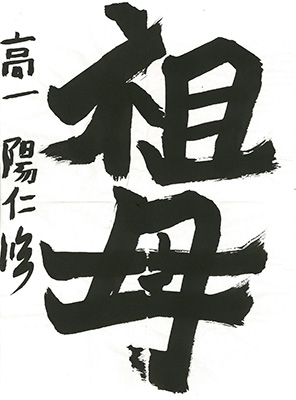 祖母
高一 陽仁修